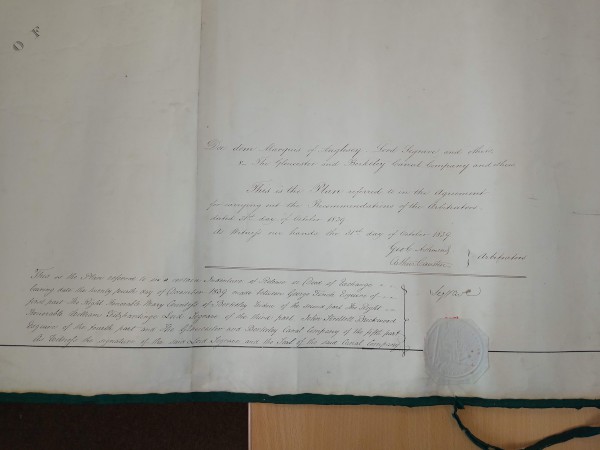 OF
Doe dem Marquis of Anglesey Lord Segrave and others
v. The Gloucester and Berkeley Canal Company and others
This is the Plan referred to in the Agreement
for carrying out the Recommendations of the Arbitrators
dated 31st day of October 1839
As Witness our hands the 31st day of October 1839
Arbitrators
This is the Plan referred to in a certain Indenture of Release or Deed of Exchange
bearing date the twenty fourth day of December 1839 made between George Esquire of
first part The Right Honorable Mary Countess of Berkeley Widow of the second part The Right
Honorable William Fitzhardinge Lord Segrave of the third part John
Esquire of the fourth part and The Gloucester and Berkeley Canal Company of the fifth part
As Witness the signature of the said Lord Segrave and the Seal of the said Canal Company
Segrave